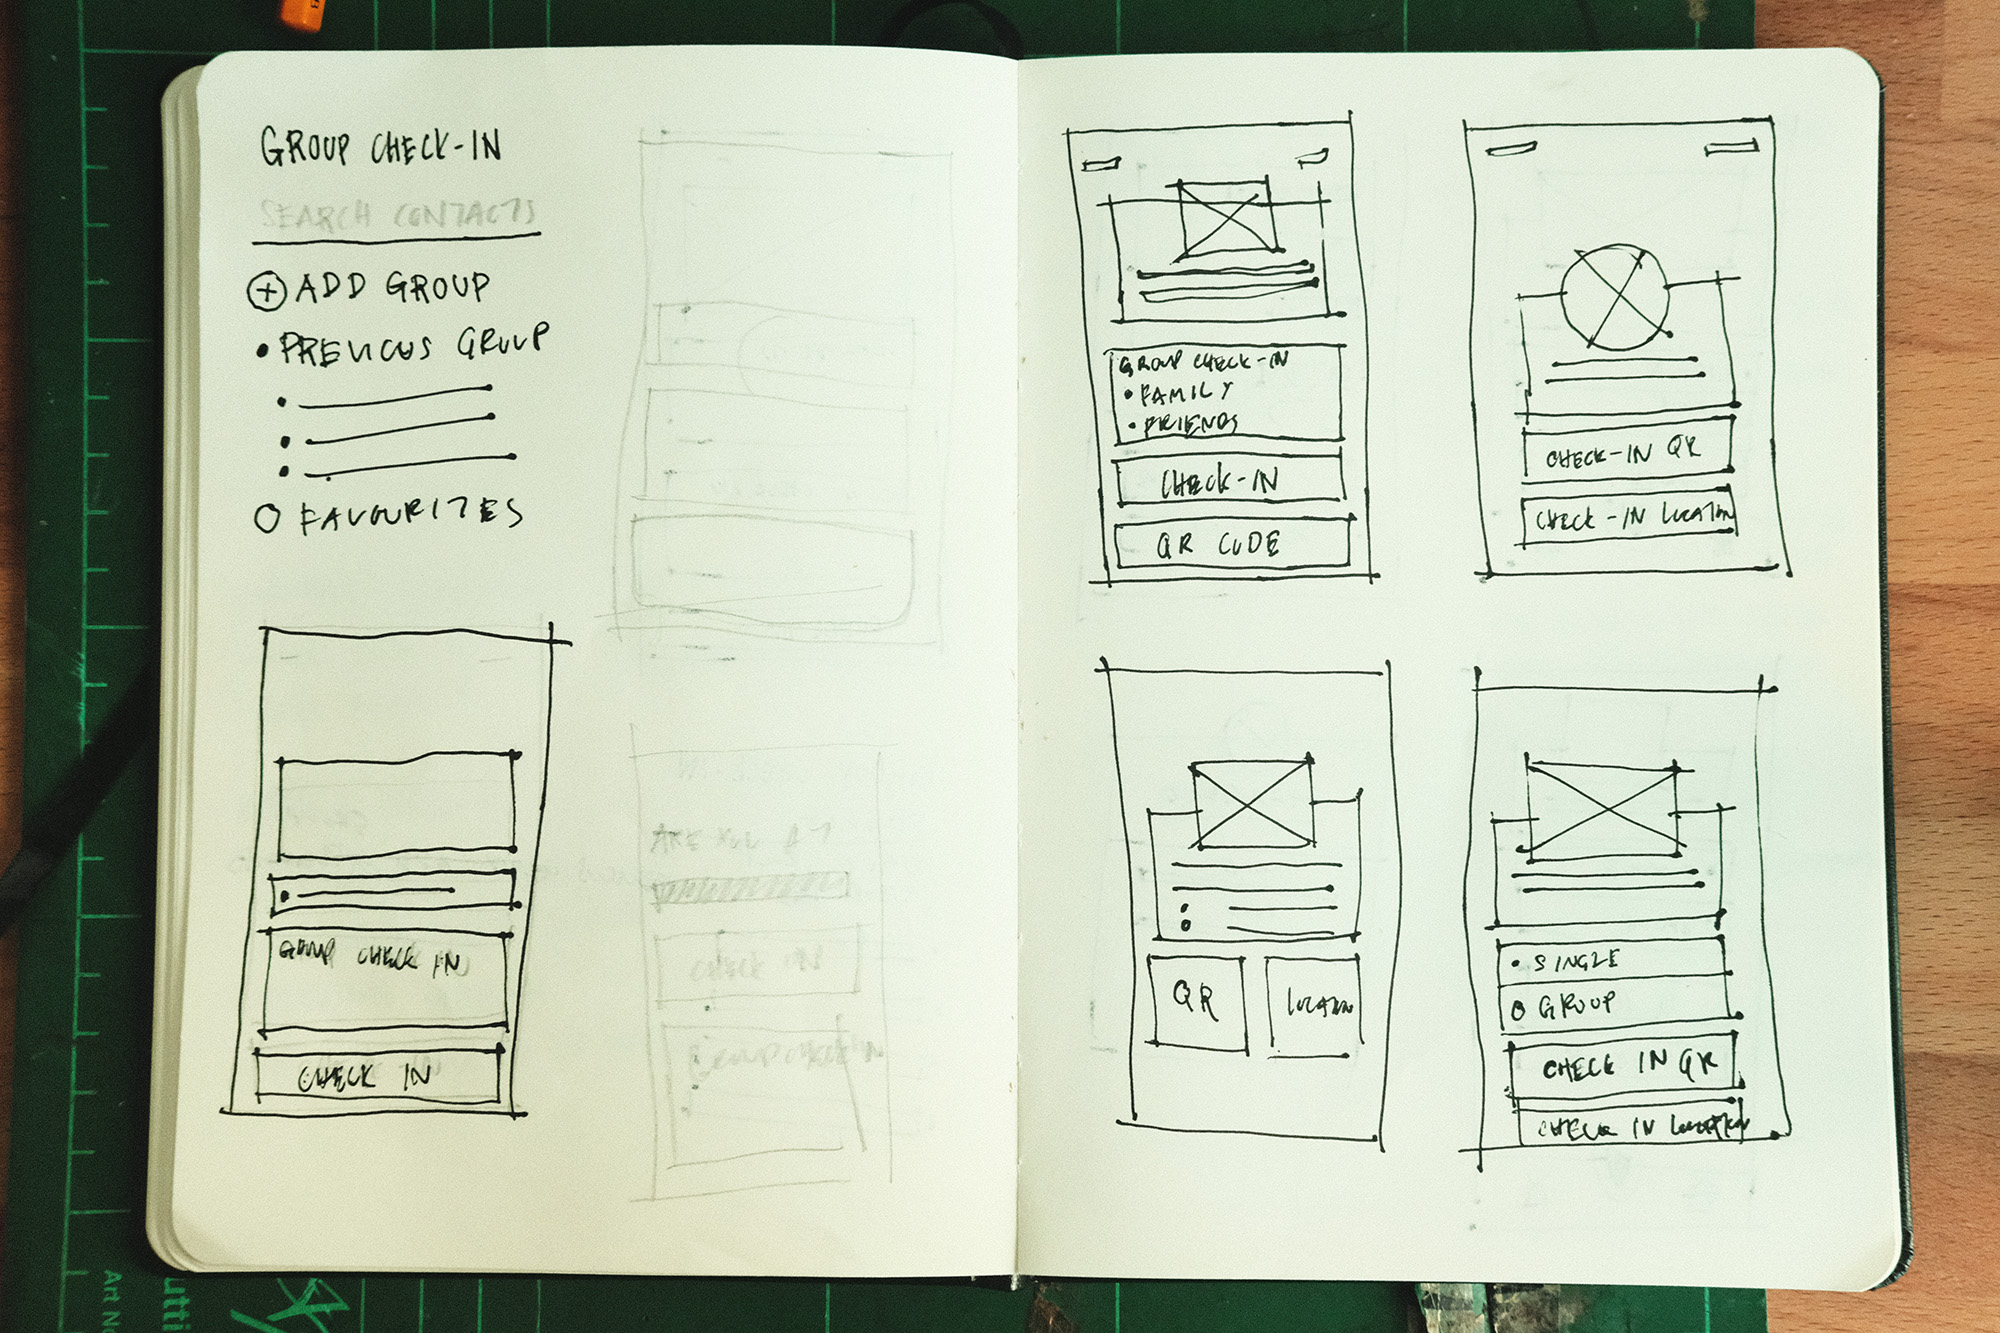 GROUP CHECK-IN
SEARCH CONTACTS
+ ADD GROUP
• PREVIOUS GROUP
O FAVOURITES
GROUP CHECK IN
CHECK IN
ARE YOU AT
CHECK IN
GROUP CHECK IN
GROUP CHECK-IN
• FAMILY
• FRIENDS
CHECK-IN
QR CODE
CHECK-IN QR
CHECK-IN LOCATION
QR
LOCATION
• SINGLE
O GROUP
CHECK IN QR
CHECK IN LOCATION
Art No